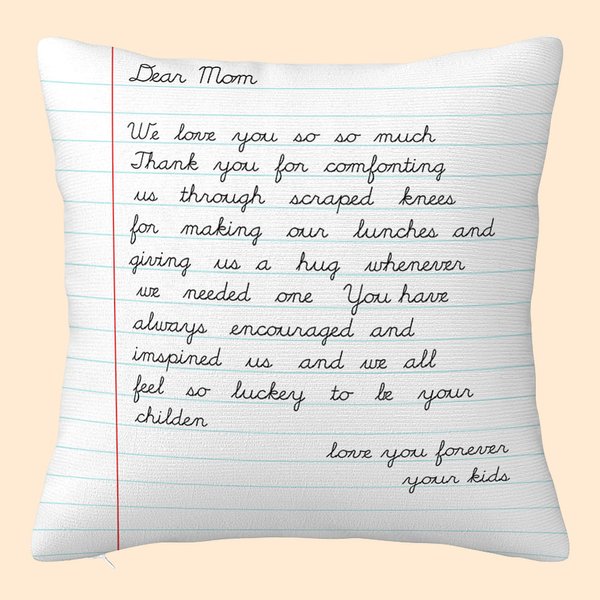 Dear Mom
We love you so so much
Thank you for comfonting
us through scraped knees
for making our lunches and
giving us a hug whenever
we needed one You have
always encouraged and
imspined us and we all
feel so luckey to be your
childen
love you forever
your kids